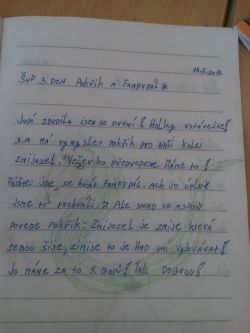 18.5.2016
ŠVP 3. DEN POKŘIK A FAMFRPÁL
JUPÍ ZBUDILA JSEM SE PRVNÍ! HOLKY VSTÁVEJTE!
3.A MÁ VYMYSLET POKŘIK PRO NAŠI KOLEJ
ZMIJOZEL. VEČER HO PŘEDVEDEME. MÁME TO!
PIŠTE: JDE SE HRÁT FAMFRPÁL. ACH JO ÚPLNĚ
JSME TO PROHRÁLI. :( ALE SNAD SE ASPOŇ
POVEDE POKŘIK: ZMIJOZEL JE ZMIJE KTERÁ
SEBOU ŠIJE, ZMIJE TO JE HAD UMÍ VYHRÁVAT!
JO MÁME ZA TO 5. BODŮ! TAK DOBROU!